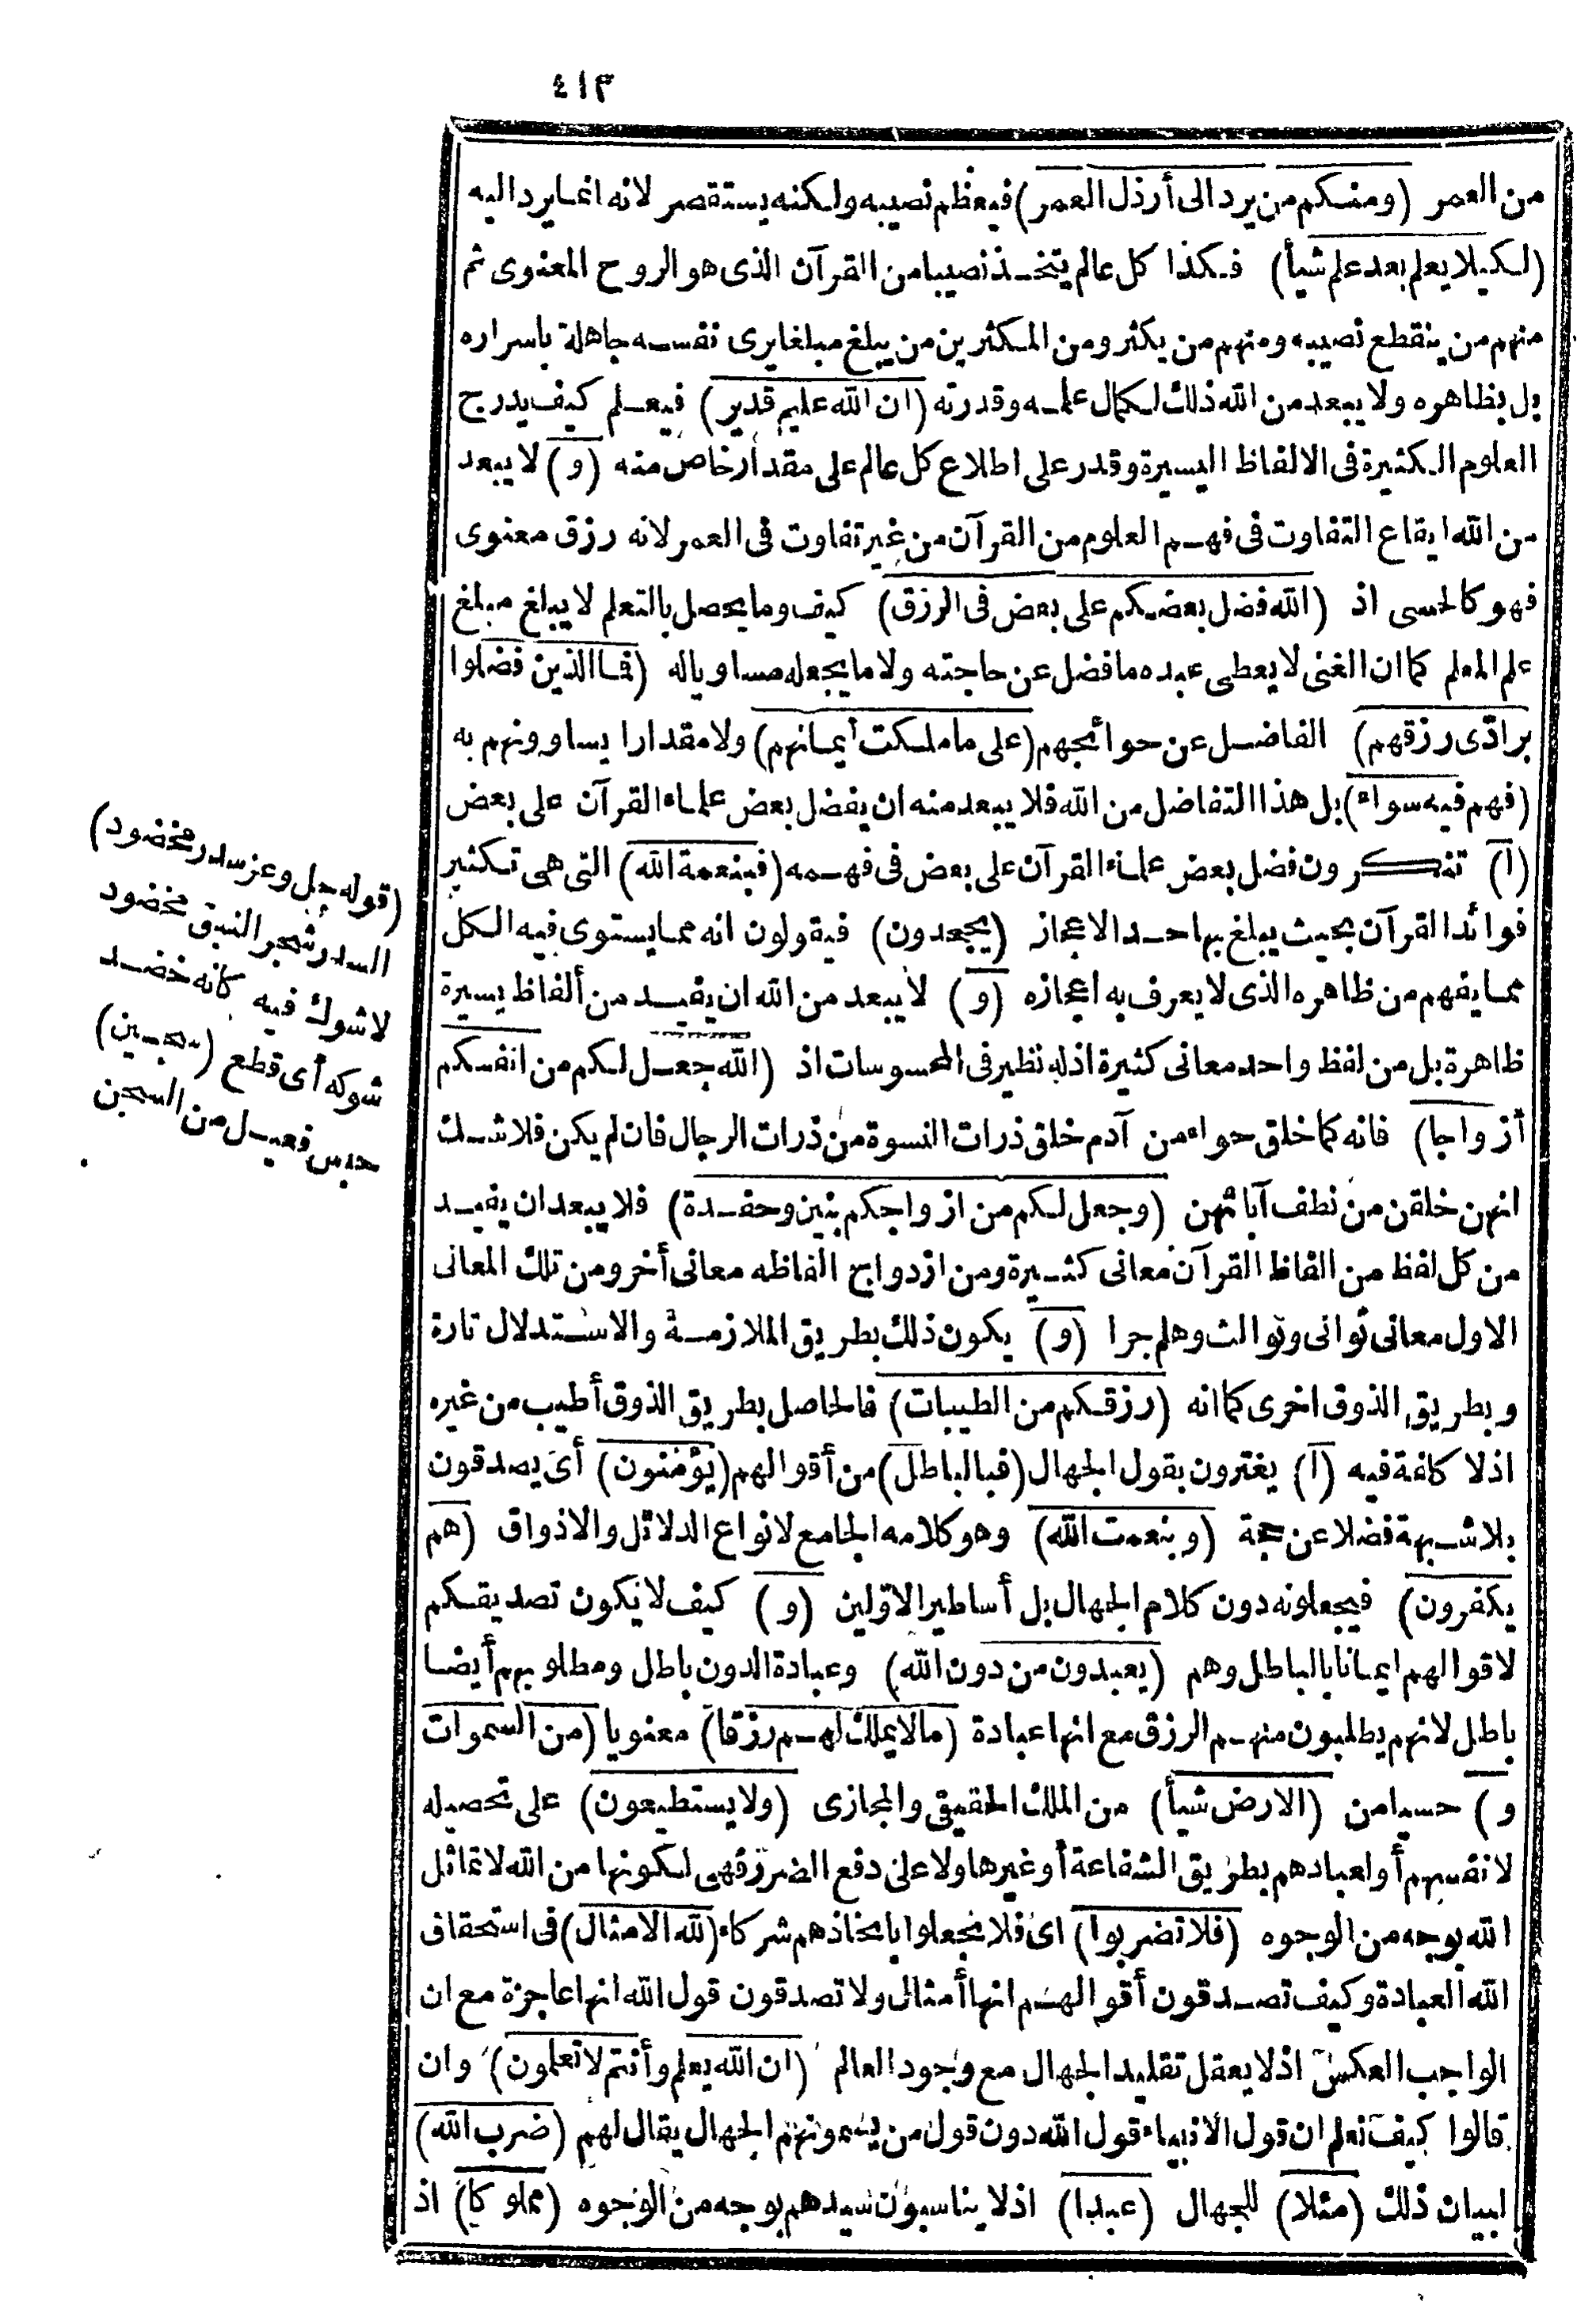 ٤١٣
من العمر (ومنكم من يرد الى أرذل العمر) فيعظم نصيبه ولكنه يستقصر لانه انما يرد اليه
(لكيلا يعلم بعد علم شيأ) فكذا كل عالم يتخذ نصيبا من القرآن الذى هو الروح المعنوى ثم
منهم من ينقطع نصيبه ومنهم من يكثر ومن المكثرين من يبلغ مبلغا يرى نفسه جاهلة باسراره
بل بظاهره ولا يبعد من الله ذلك لكمال علمه وقدرته (ان الله عليم قدير) فيعلم كيف يدرج
العلوم الكثيرة فى الالفاظ اليسيرة وقدر على اطلاع كل عالم على مقدار خاص منه (و) لا يبعد
من الله ايقاع التفاوت فى فهم العلوم من القرآن من غير تفاوت فى العمر لانه رزق معنوى
فهو كالحسى اذ (الله فضل بعضكم على بعض فى الرزق) كيف وما يحصل بالتعلم لا يبلغ مبلغ
علم المعلم كما ان الغنى لا يعطى عبده ما فضل عن حاجته ولا ما يجعله مساويا له (فما الذين فضلوا
برادّى رزقهم) الفاضل عن حوائجهم (على ما ملكت أيمانهم) ولا مقدارا يساوونهم به
(فهم فيه سواء) بل هذا التفاضل من الله فلا يبعد منه ان يفضل بعض علماء القرآن على بعض
(ا) تنكرون فضل بعض علماء القرآن على بعض فى فهمه (فبنعمة الله) التى هى تكثير
فوائد القرآن بحيث يبلغ بها حد الاعجاز (يجحدون) فيقولون انه مما يستوى فيه الكل
مما يفهم من ظاهره الذى لا يعرف به اعجازه (و) لا يبعد من الله ان يفيد من ألفاظ يسيرة
ظاهرة بل من لفظ واحد معانى كثيرة اذ له نظير فى المحسوسات اذ (الله جعل لكم من انفسكم
أزواجا) فانه كما خلق حواء من آدم خلق ذرات النسوة من ذرات الرجال فان لم يكن فلا شك
انهن خلقن من نطف آبائهن (وجعل لكم من ازواجكم بنين وحفدة) فلا يبعد ان يفيد
من كل لفظ من الفاظ القرآن معانى كثيرة ومن ازدواج الفاظه معانى أخر ومن تلك المعانى
الاول معانى ثوانى وثوالث وهلم جرا (و) يكون ذلك بطريق الملازمة والاستدلال تارة
وبطريق الذوق اخرى كما انه (رزقكم من الطيبات) فالحاصل بطريق الذوق أطيب من غيره
اذ لا كلفة فيه (ا) يغترون بقول الجهال (فبالباطل) من أقوالهم (يؤمنون) أى يصدقون
بلا شبهة فضلا عن حجة (وبنعمت الله) وهو كلامه الجامع لانواع الدلائل والاذواق (هم
يكفرون) فيجعلونه دون كلام الجهال بل أساطير الاوّلين (و) كيف لا يكون تصديقكم
لاقوالهم ايمانا بالباطل وهم (يعبدون من دون الله) وعبادة الدون باطل ومطلوبهم أيضا
باطل لانهم يطلبون منهم الرزق مع انها عبادة (ما لا يملك لهم رزقا) معنويا (من السموات
و) حسيا من (الارض شيأ) من الملك الحقيقى والمجازى (ولا يستطيعون) على تحصيله
لانفسهم أو لعبادهم بطريق الشفاعة أو غيرها ولا على دفع الضرر فهى لكونها من الله لا تماثل
الله بوجه من الوجوه (فلا تضربوا) اى فلا تجعلوا باتخاذهم شركاء (لله الامثال) فى استحقاق
الله العبادة وكيف تصدقون أقوالهم انها أمثال ولا تصدقون قول الله انها عاجزة مع ان
الواجب العكس اذ لا يعقل تقليد الجهال مع وجود العالم (ان الله يعلم وأنتم لا تعلمون) وان
قالوا كيف نعلم ان قول الانبياء قول الله دون قول من يسمونهم الجهال يقال لهم (ضرب الله)
لبيان ذلك (مثلا) للجهال (عبدا) اذ لا يناسبون سيدهم بوجه من الوجوه (مملوكا) اذ
(قوله جل وعز سدر مخضود)
السدر شجر النبق مخضود
لا شوك فيه كأنه خضد
شوكه أى قطع (سجين)
حبس فعيل من السجن